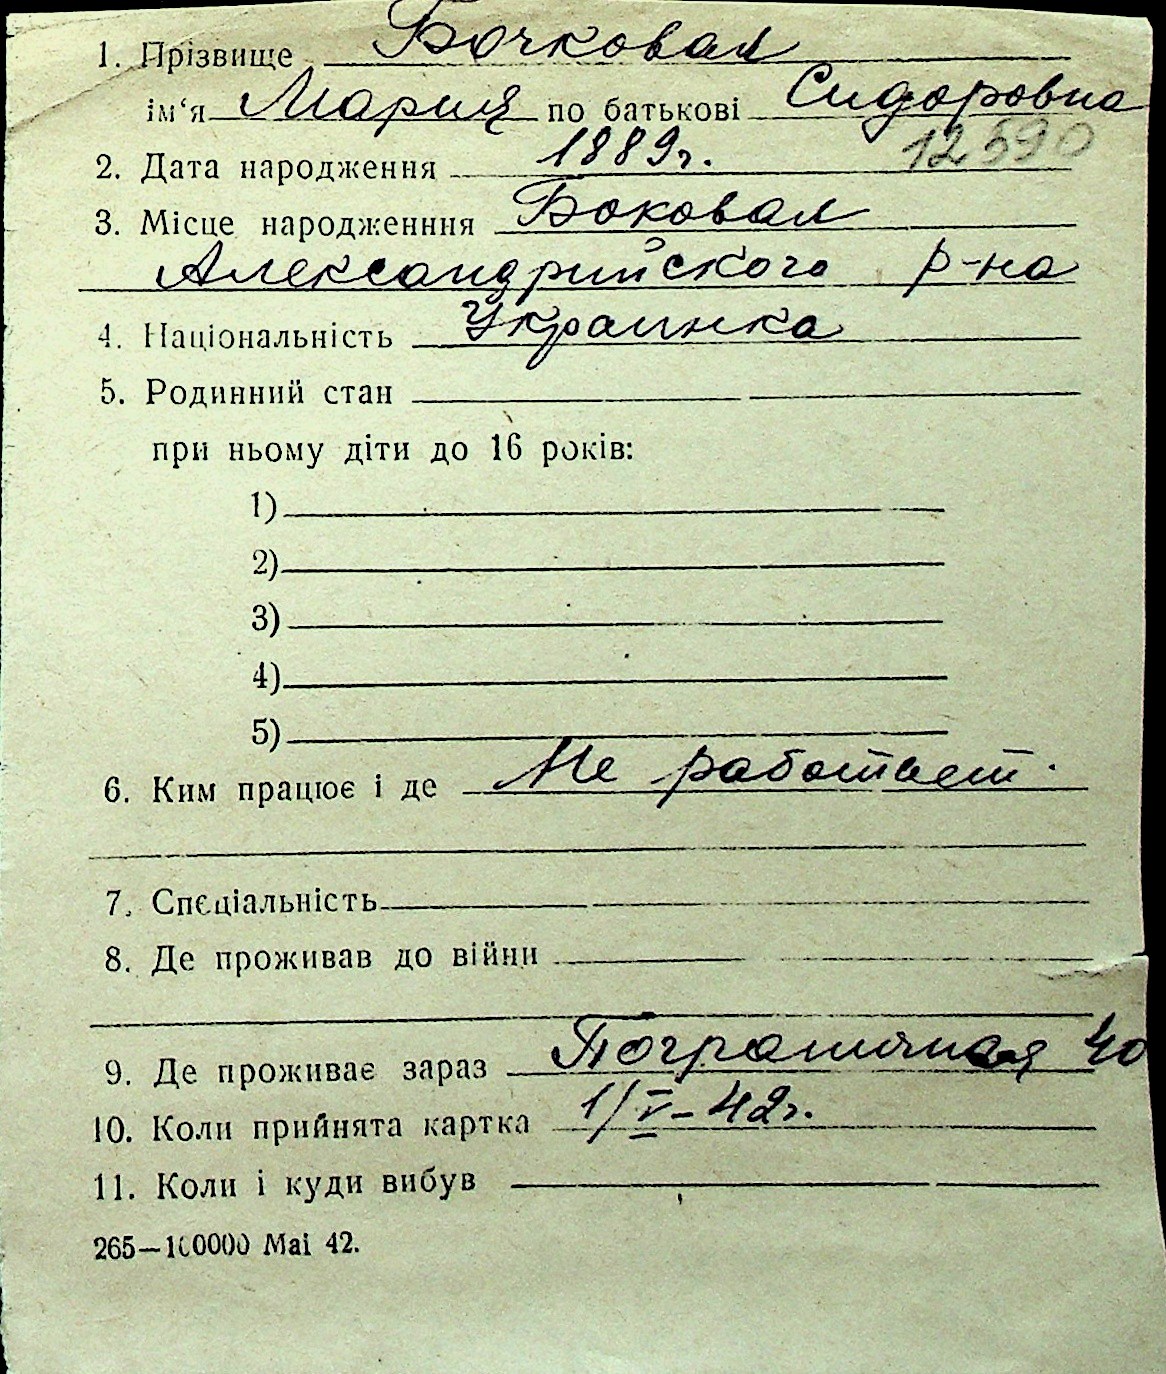 1. Прізвище Бочковал
ім‘я Мария по батькові Сидоровна
2. Дата народження 1889г. 12590
3. Місце народженння Боковал
Александрийского р-на
4. Національність Украинка
5. Родинний стан
при ньому діти до 16 років:
1)
2)
3)
4)
5)
6. Ким працює і де Не работает.
7. Спєціальність
8. Де проживав до війни
9. Де проживає зараз Пограничная 40
10. Коли прийнята картка 1/V-42г.
11. Коли і куди вибув
265—100000 Маі 42.